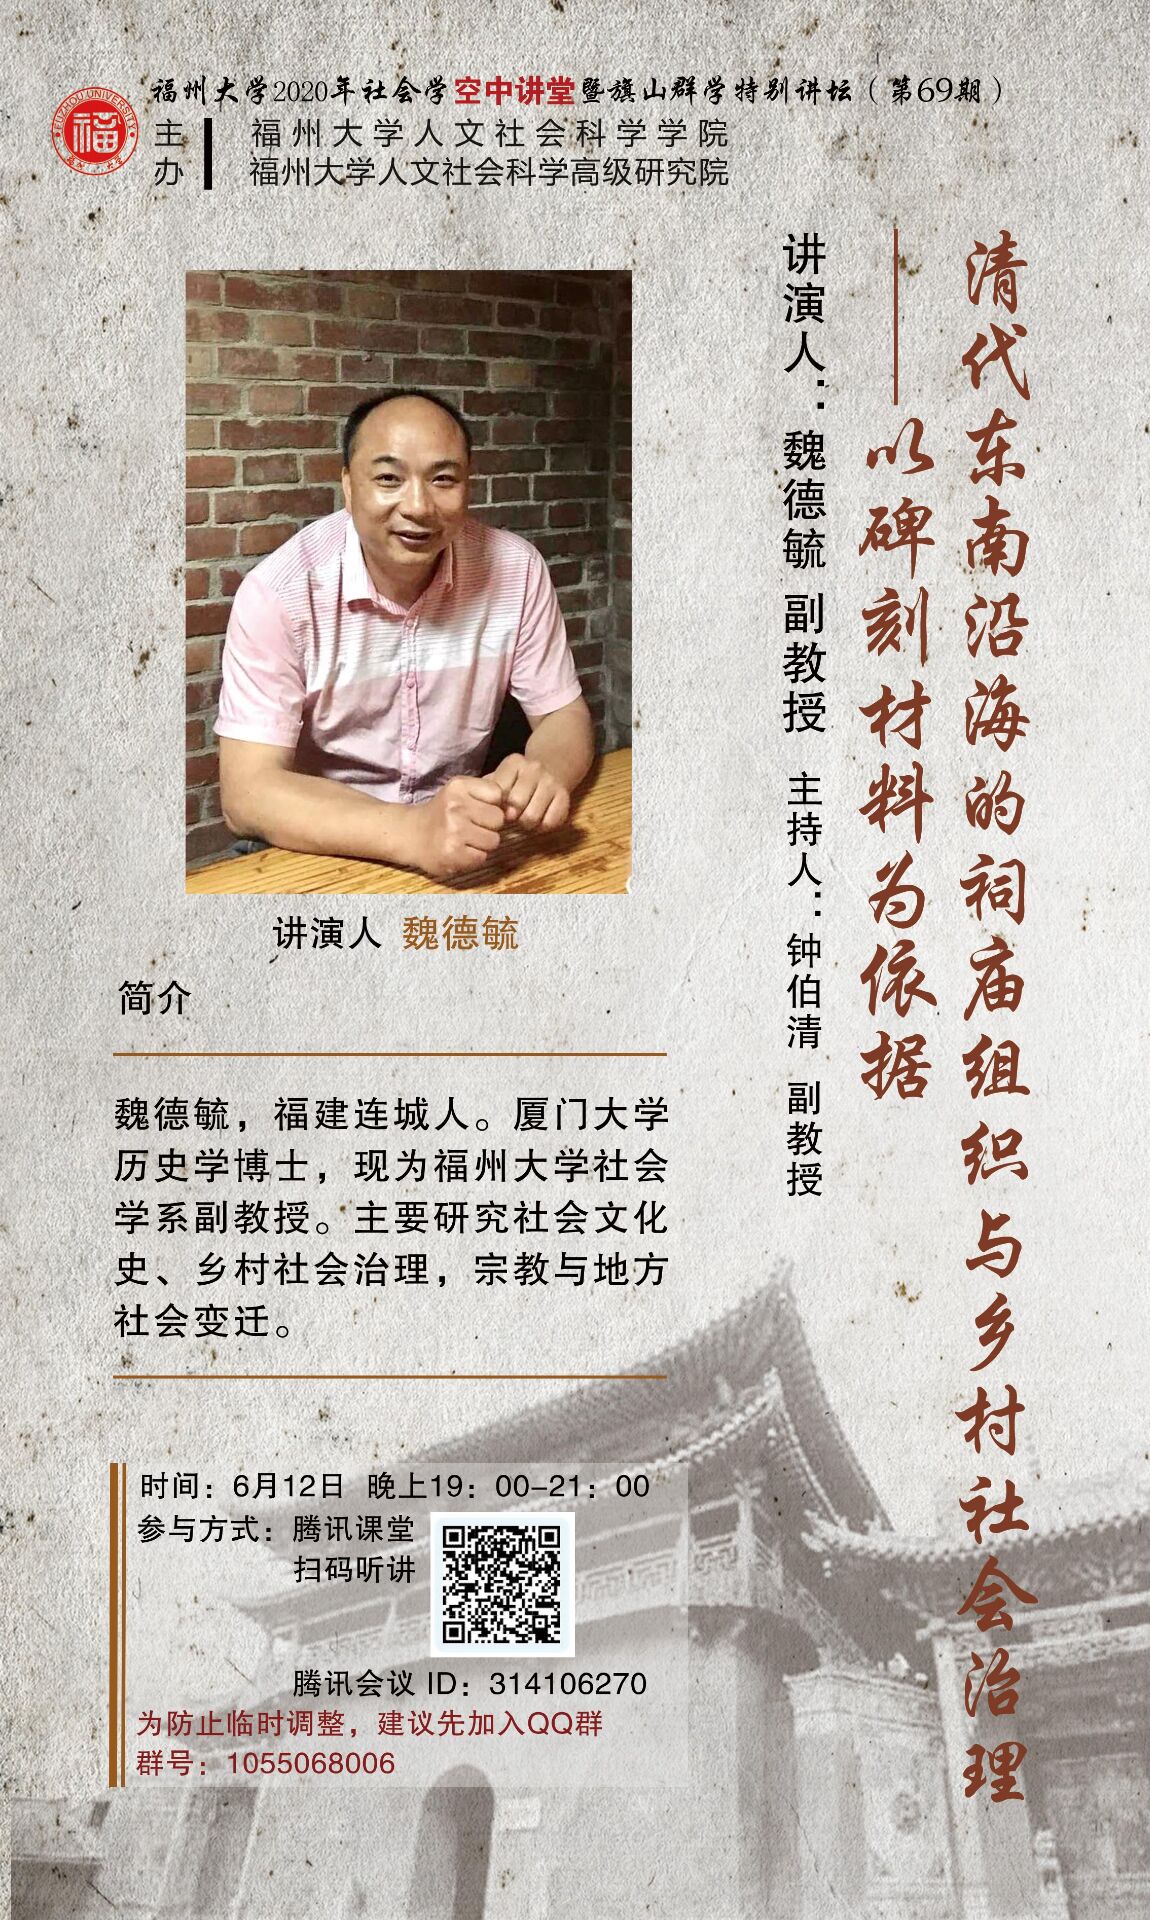 福州大学2020年社会学空中讲堂暨旗山群学特别讲坛（第69期）
FUZHOU UNIVERSITY
福
福州大学
主办
福州大学人文社会科学学院
福州大学人文社会科学高级研究院
清代东南沿海的祠庙组织与乡村社会治理
——以碑刻材料为依据
讲演人：魏德毓 副教授 主持人：钟伯清 副教授
讲演人 魏德毓
简介
魏德毓，福建连城人。厦门大学
历史学博士，现为福州大学社会
学系副教授。主要研究社会文化
史、乡村社会治理，宗教与地方
社会变迁。
时间：6月12日 晚上19：00-21：00
参与方式：腾讯课堂
扫码听讲
腾讯会议 ID：314106270
为防止临时调整，建议先加入QQ群
群号：1055068006